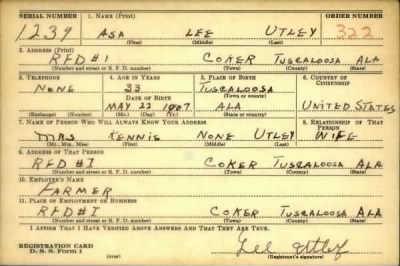 SERIAL NUMBER 1. NAME (Print) ORDER NUMBER
1239 ASA LEE UTLEY 322
(First) (Middle) (Last)
2. ADDRESS (Print)
RFD #1 COKER TUSCALOOSA ALA
(Number and street or R. F. D. number) (Town) (County) (State)
3. TELEPHONE 4. AGE IN YEARS 5. PLACE OF BIRTH 6. COUNTRY OF CITIZENSHIP
NONE 33 TUSCALOOSA
DATE OF BIRTH (Town or county)
MAY 22 1907 ALA UNITED STATES
(Exchange) (Number) (Mo.) (Day) (Yr.) (State or country)
7. NAME OF PERSON WHO WILL ALWAYS KNOW YOUR ADDRESS 8. RELATIONSHIP OF THAT PERSON
MRS KENNIE NONE UTLEY WIFE
(Mr., Mrs., Miss) (First) (Middle) (Last)
9. ADDRESS OF THAT PERSON
RFD #I COKER TUSCALOOSA ALA
(Number and street or R. F. D. number) (Town) (County) (State)
10. EMPLOYER'S NAME
FARMER
11. PLACE OF EMPLOYMENT OR BUSINESS
RFD #I COKER TUSCALOOSA ALA
(Number and street or R. F. D. number) (Town) (County) (State)
I AFFIRM THAT I HAVE VERIFIED ABOVE ANSWERS AND THAT THEY ARE TRUE.
REGISTRATION CARD
D. S. S. Form 1 (over) Lee Utley
(Registrant's signature)